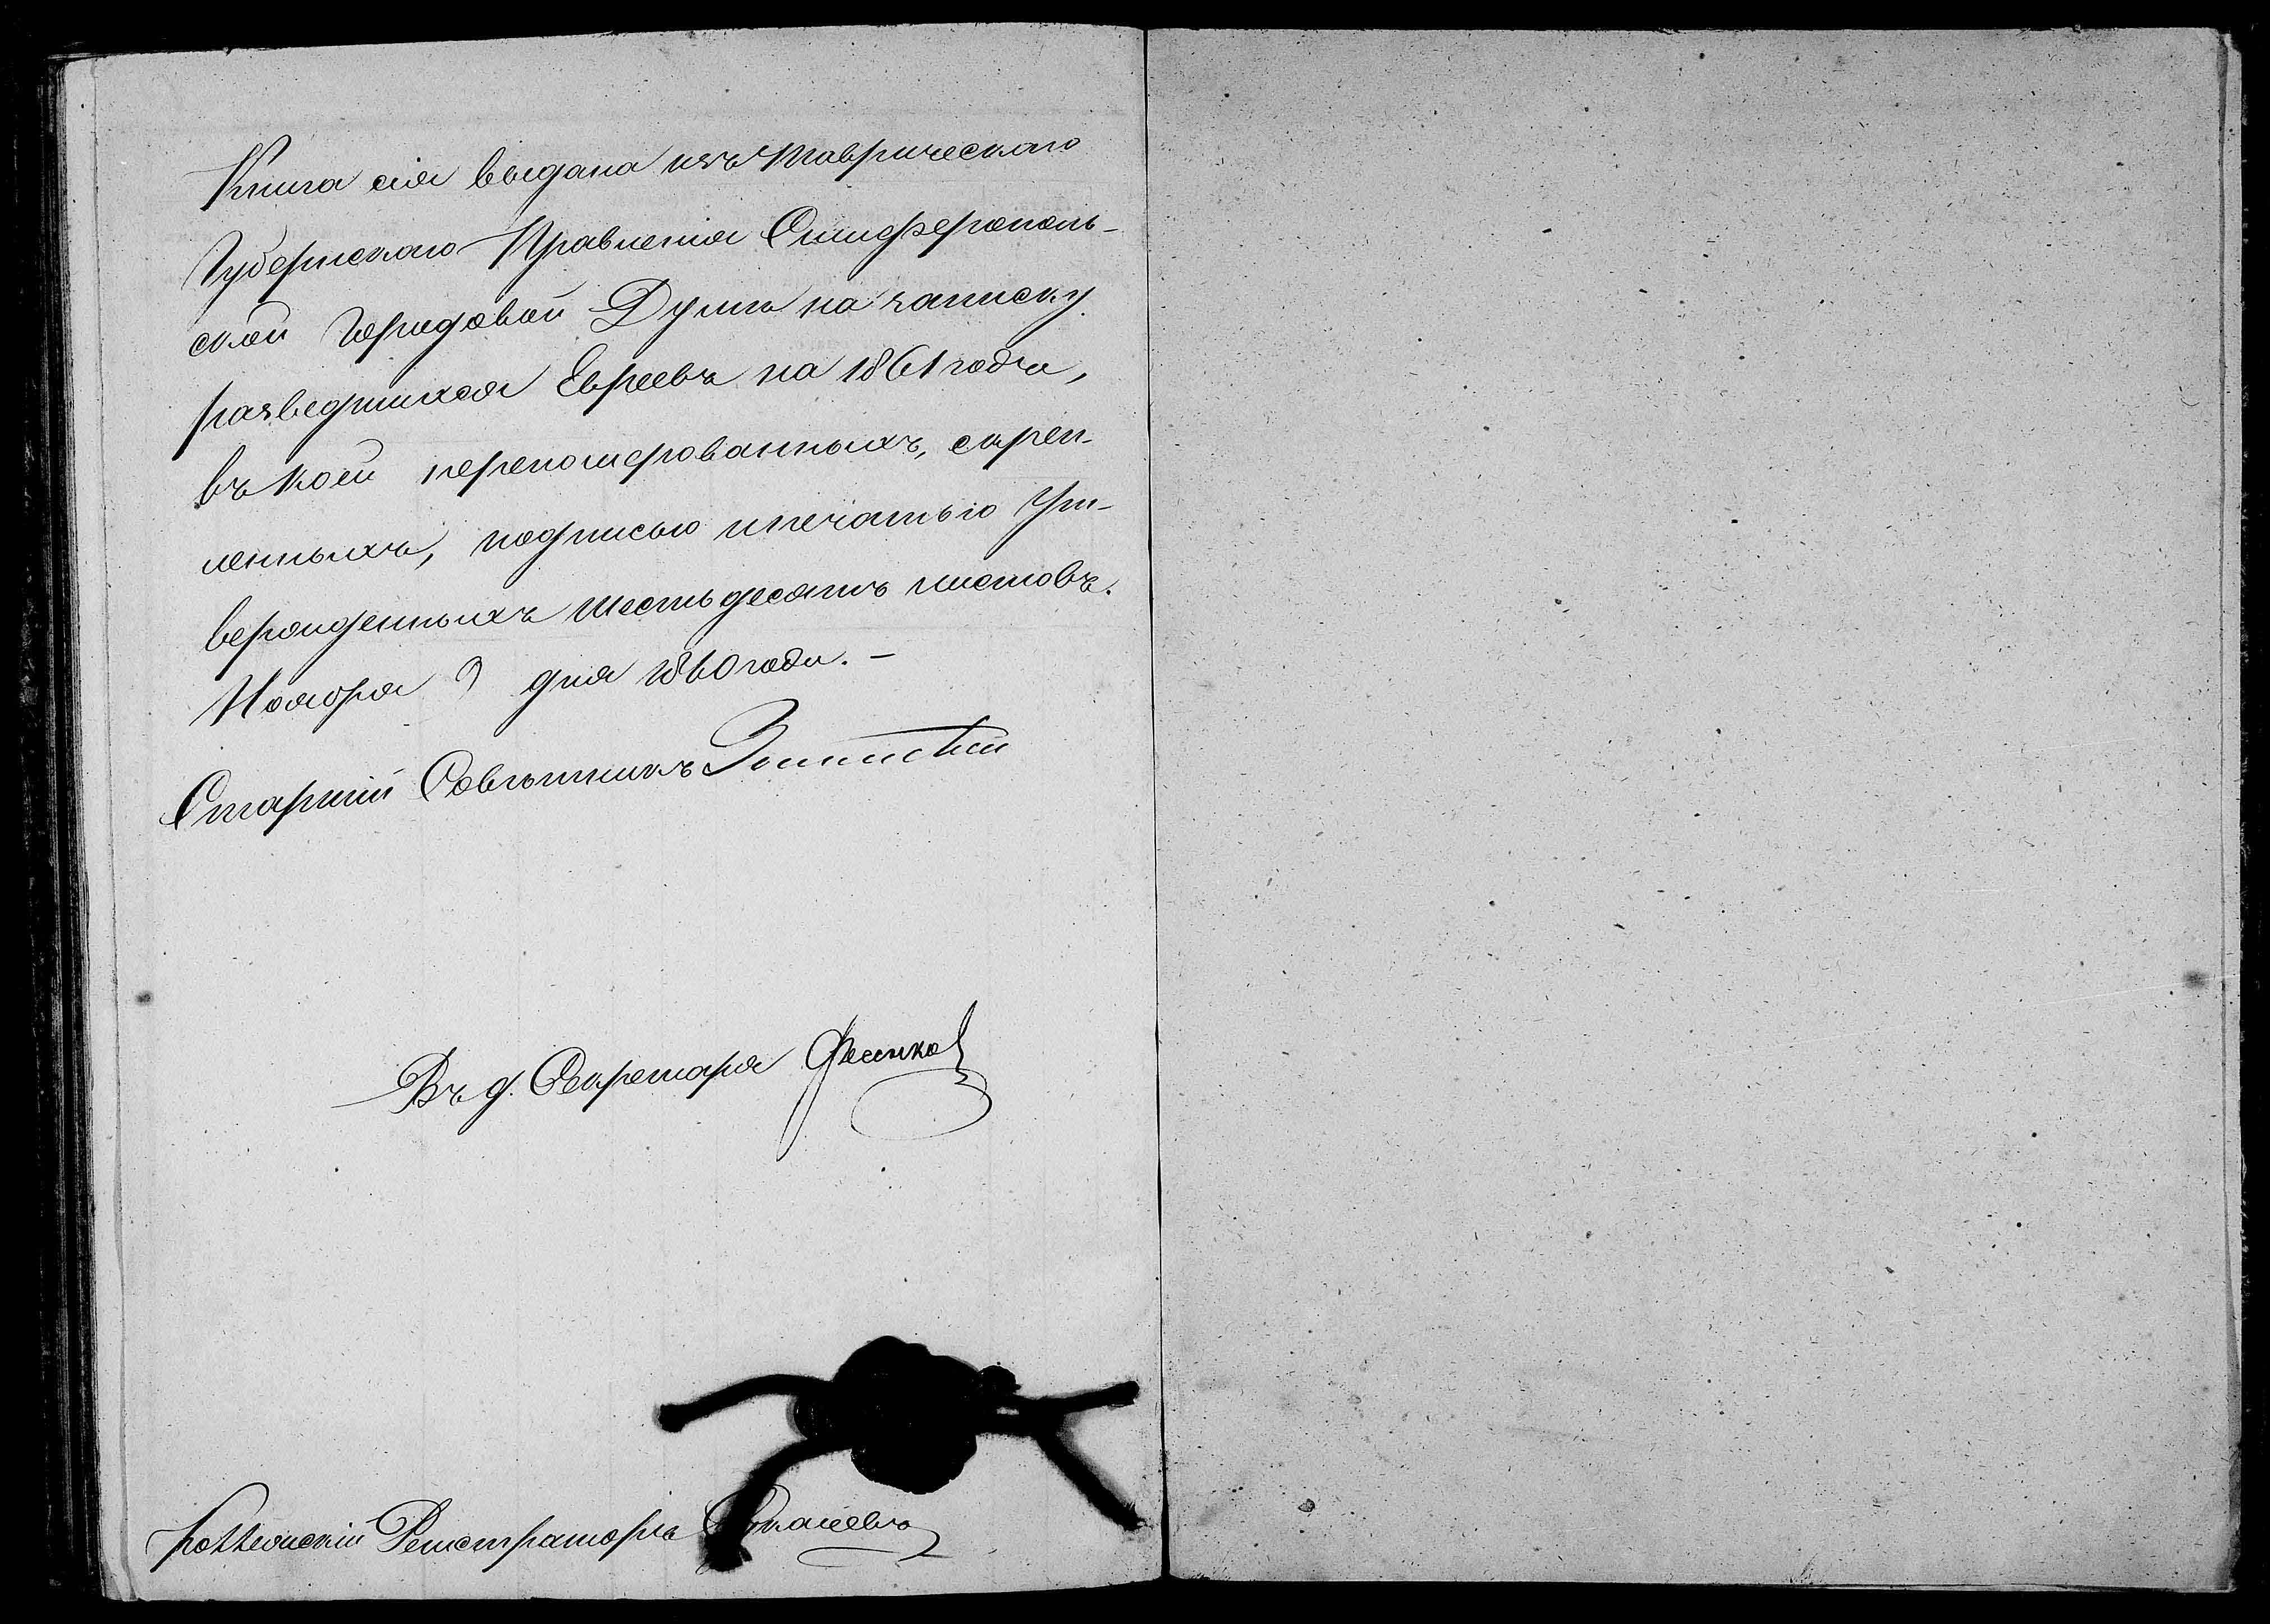 Книга сія выдана изъ Таврическаго
Губернскаго Правленія Симферополь-
ской Городовой Думѣ на записку
разведшихся Евреевъ на 1861 годъ,
въ коей перенумерованныхъ, скреп-
ленныхъ, подписью и печатью Ут-
вержденныхъ шестьдесятъ листовъ.
Ноября 9 дня 1860 года. –
Старшій Совѣтникъ
Въ д. Секретаря
Коллежскій Регистраторъ